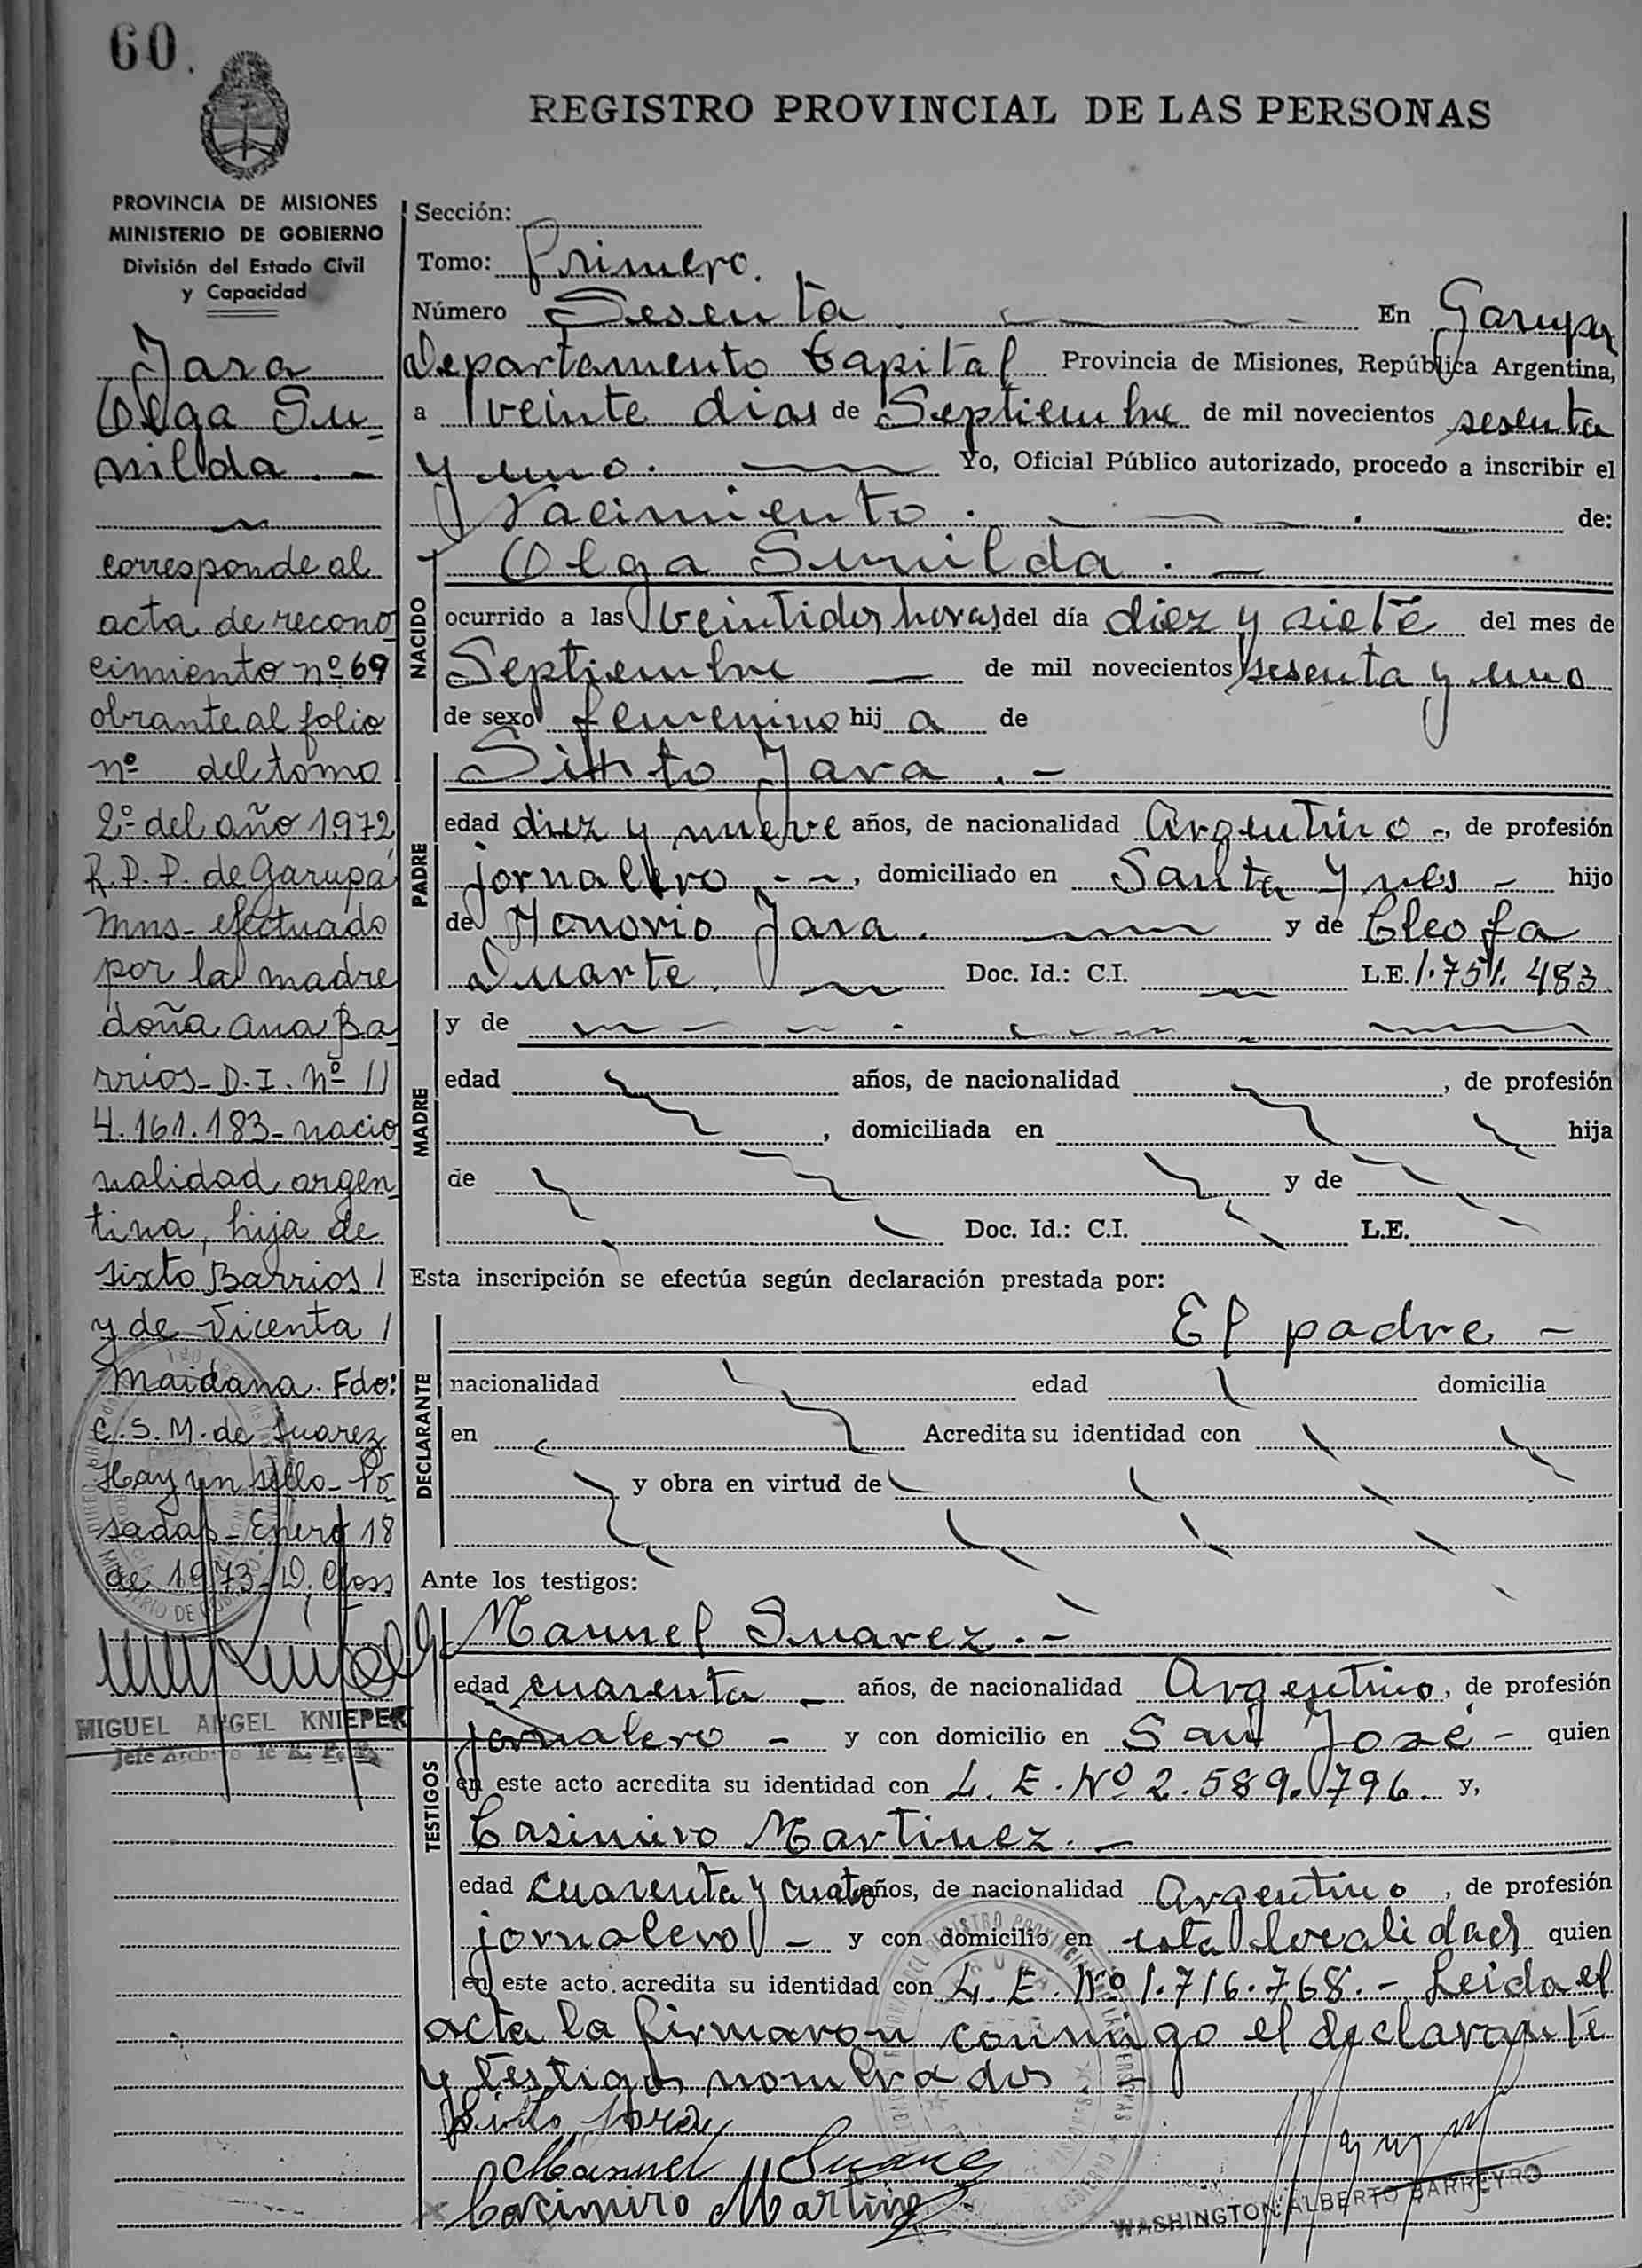 60.
REGISTRO PROVINCIAL DE LAS PERSONAS
PROVINCIA DE MISIONES
MINISTERIO DE GOBIERNO
División del Estado Civil
y Capacidad
Jara
Olga Su-
nilda . -
corresponde al
acta de recono
cimiento nº 69
obrante al folio
nº del tomo
2º del año 1972
R.P.P. de Garupá
Mnes- efectuado
por la madre
doña Ana Ba
rrios - D.I. Nº //
4.161.183 - nacio
nalidad argen
tina, hija de
Sixto Barrios /
y de Vicenta /
Maidana. Fdo:
C.S.M. de Suarez
Hay un sello - Po
sadas - Enero 18
de 1973 -
MIGUEL ANGEL KNIEPER
Jefe Archivo de R. P. P.
Sección:
Tomo: Primero.
Número Sesenta . En Garupa
Departamento Capital Provincia de Misiones, República Argentina,
a veinte dias de Septiembre de mil novecientos sesenta
y uno. Yo, Oficial Público autorizado, procedo a inscribir el
Nacimiento . de:
NACIDO
Olga Sunilda . -
ocurrido a las veintidos horas del día diez y siete del mes de
Septiembre de mil novecientos sesenta y uno
de sexo femenino hij a de
PADRE
Sixto Jara . -
edad diez y nueve años, de nacionalidad Argentino -, de profesión
jornalero - -, domiciliado en Santa Ynes - hijo
de Honorio Jara . y de Cleofa
Duarte. Doc. Id.: C.I. L.E. 1.751.483
MADRE
y de
edad años, de nacionalidad , de profesión
, domiciliada en hija
de y de
Doc. Id.: C.I. L.E.
Esta inscripción se efectúa según declaración prestada por:
DECLARANTE
El padre -
nacionalidad edad domicilia
en Acredita su identidad con
y obra en virtud de
Ante los testigos:
TESTIGOS
Manuel Suarez . -
edad cuarenta - años, de nacionalidad Argentino, de profesión
jornalero - y con domicilio en San José - quien
en este acto acredita su identidad con L. E. Nº 2.589.796 y,
Casimiro Martinez . -
edad cuarenta y cuatro años, de nacionalidad Argentino, de profesión
jornalero - y con domicilio en esta localidad quien
en este acto acredita su identidad con L. E. Nº 1.716.768. - Leida el
acta la firmaron conmigo el declarante
y testigos nombrados . -
Sixto Jara
Manuel Suarez
Casimiro Martinez
WASHINGTON ALBERTO BARREYRO